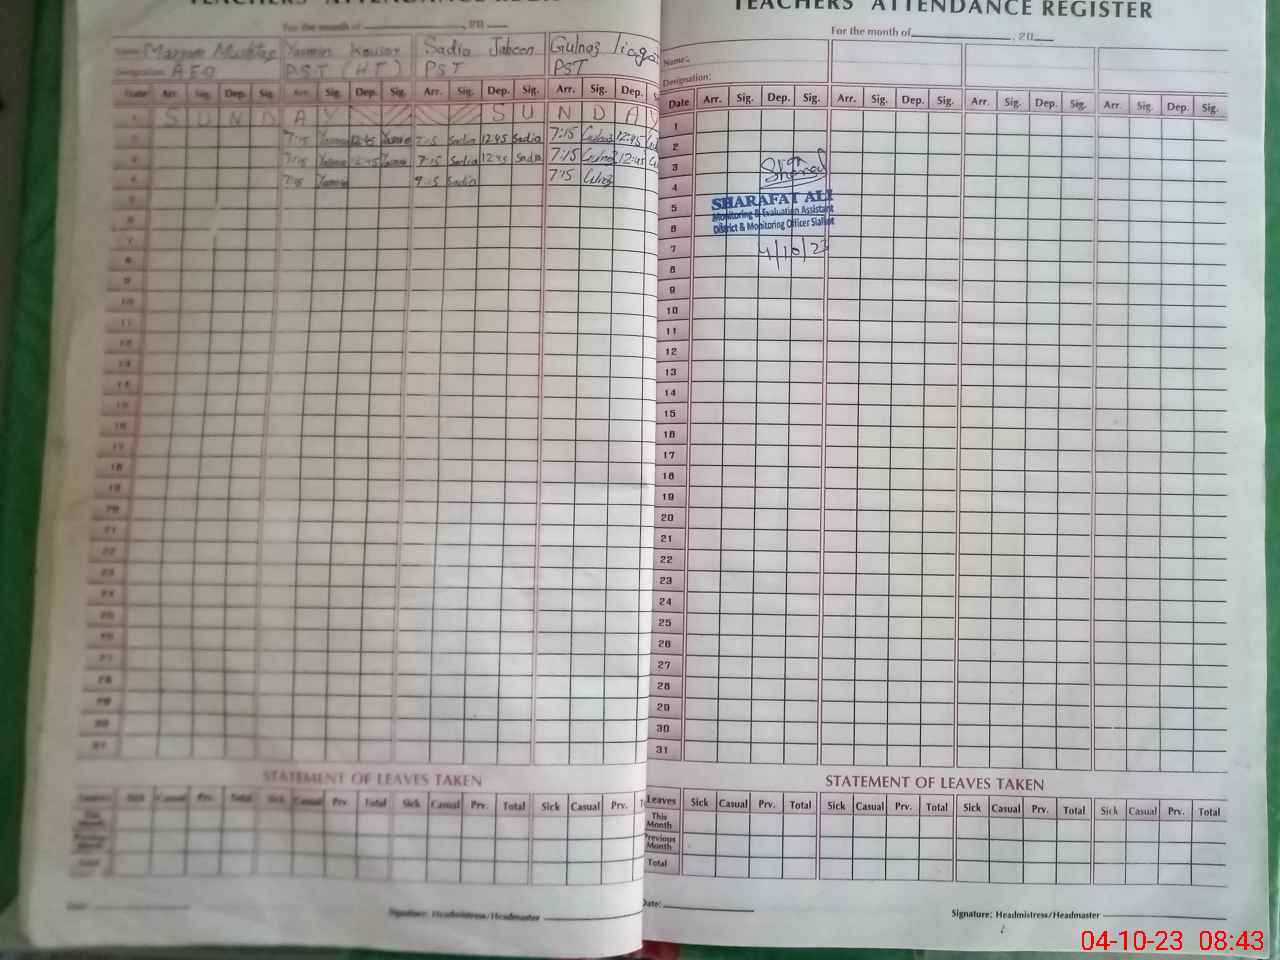 TEACHERS' ATTENDANCE REGISTER
For the month of , 20
Name: Maryam Mushtaq Yasmin Kousar Sadia Jabeen Gulnaz liaqa
Designation: AEO PST (HT) PST PST
Date Arr. Sig. Dep. Sig. Arr. Sig. Dep. Sig. Arr. Sig. Dep. Sig. Arr. Sig. Dep.
1 S U N D A Y S U N D A Y
2 7:15 Yasmin 12:45 Yasmin 7:15 Sadia 12:45 Sadia 7:15 Gulnaz 12:45
3 7:15 Yasmin 12:45 Yasmin 7:15 Sadia 12:45 Sadia 7:15 Gulnaz 12:45
4 7:15 Yasmin 7:15 Sadia 7:15 Gulnaz
5
6
7
8
9
10
11
12
13
14
15
16
17
18
19
20
21
22
23
24
25
26
27
28
29
30
31
STATEMENT OF LEAVES TAKEN
Leaves Sick Casual Prv. Total Sick Casual Prv. Total Sick Casual Prv. Total Sick Casual Prv.
This Month
Previous Month
Total
Date:
Signature: Headmistress/Headmaster
TEACHERS' ATTENDANCE REGISTER
For the month of , 20
Name:
Designation:
Date Arr. Sig. Dep. Sig. Arr. Sig. Dep. Sig. Arr. Sig. Dep. Sig. Arr. Sig. Dep. Sig.
1
2
3
4
5
6
7
8
9
10
11
12
13
14
15
16
17
18
19
20
21
22
23
24
25
26
27
28
29
30
31
SHARAFAT ALI
Monitoring & Evaluation Assistant
District & Monitoring Officer Sialkot
4/10/23
STATEMENT OF LEAVES TAKEN
Leaves Sick Casual Prv. Total Sick Casual Prv. Total Sick Casual Prv. Total Sick Casual Prv. Total
This Month
Previous Month
Total
Date:
Signature: Headmistress/Headmaster
04-10-23 08:43